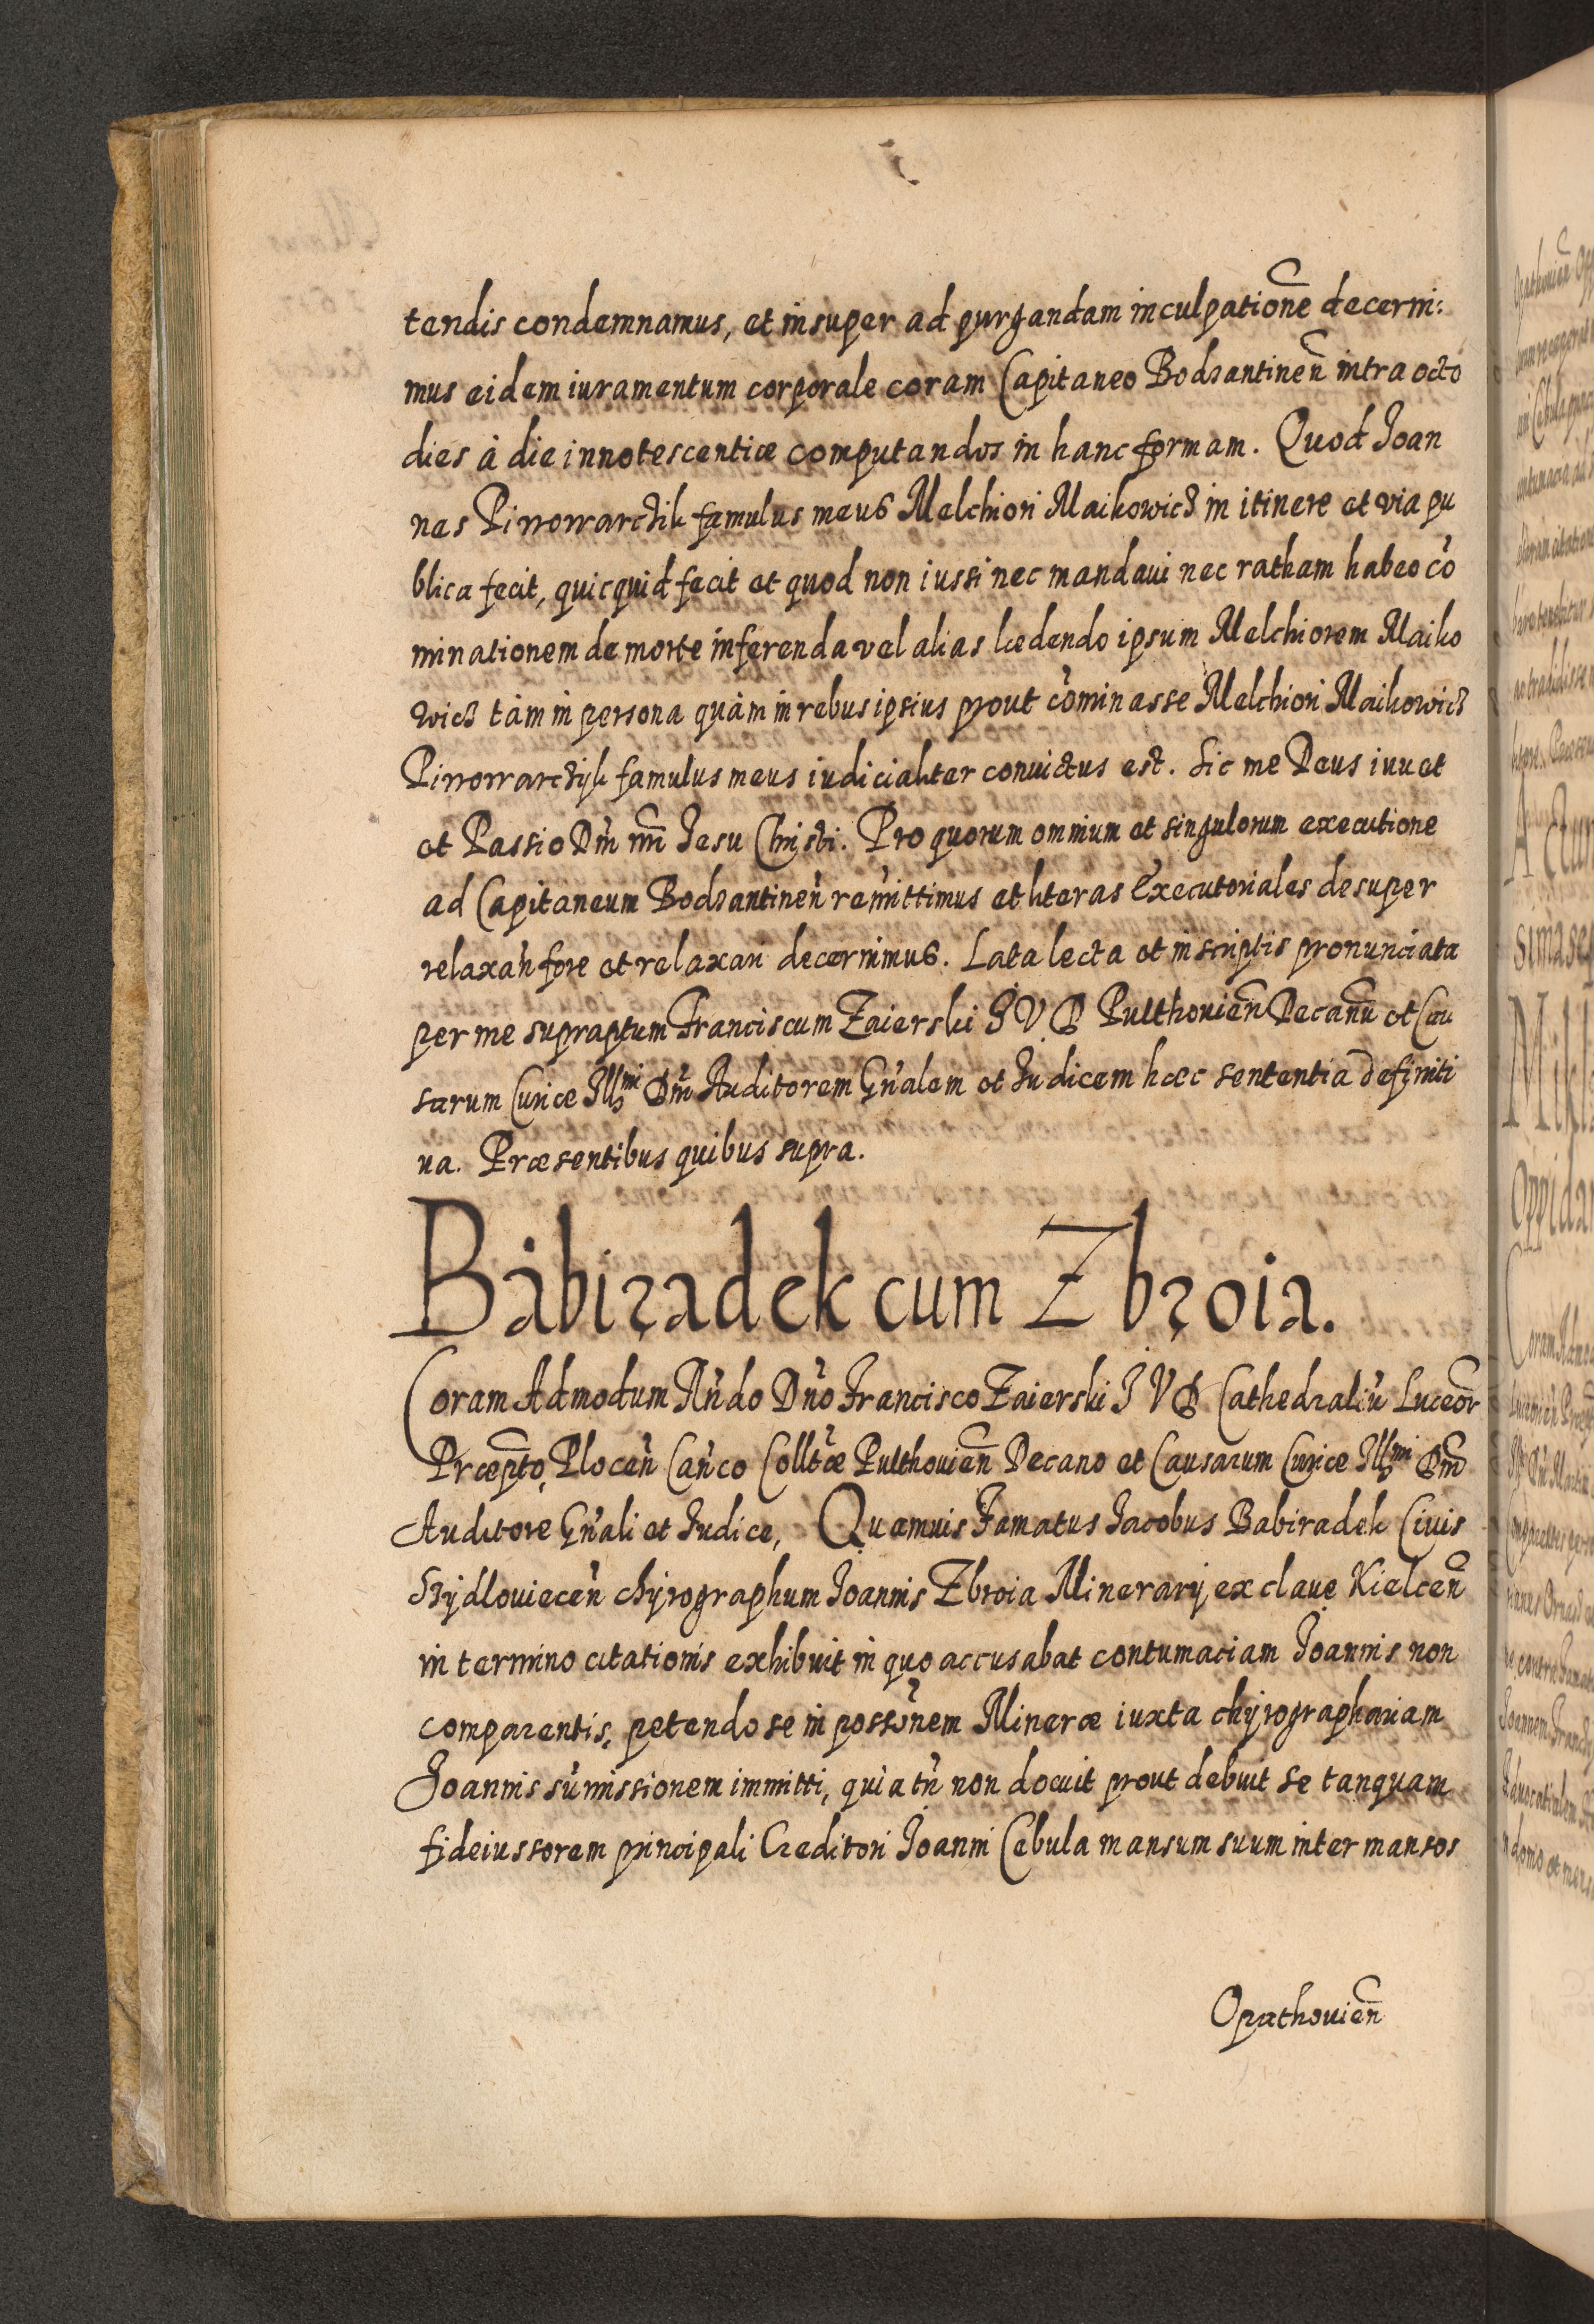 tendis condemnamus, et insuper ad purgandam inculpationẽ decerni:
mus eidem iuramentum corporale coram Capitaneo Bodzantineñ intra octo
dies à die innotescentiæ computandos in hanc formam. Quod Joan
nes Piwowarczik famulus meus Melchiori Maikowicz in itinere et via pu
blica fecit, quicquid fecit et quod non iussi nec mandavi nec ratham habeo cõ
minationem de morte inferenda vel alias lædendo ipsum Melchiorem Maiko
wicz tàm in persona quàm in rebus ipsius prout cõminasse Melchiori Maikowicz
Piwowarczyk famulus meus iudicialiter conuictus est. Sic me Deus iuuet
et Passio Dñi nñi Jesu Christi. Pro quorum omnium et singulorum executione
ad Capitaneum Bodzantineñ remittimus et literas Executoriales desuper
relaxañ fore et relaxari decernimus. Lata lecta et in scriptis pronunciata
per me supraptum Franciscum Zaierski J V D Pulthouieñ Decanũ et Cau
sarum Curiæ Illmi Dñi Auditorem Gñalem et Judicem hæc sententia definiti
ua. Præsentibus quibus supra.
Babiradek cum Zbroia.
Coram Admodum Rñdo Dño Francisco Zaierski J V D Cathedraliũ Luceoŕ
Præepto, Ploceñ Cañco Colltæ Pulthouieñ Decano et Causarum Curiæ Illmi Dñi
Auditore Gñali et Judice, Quamuis Famatus Jacobus Babiradek Ciuis
Szydlouieceñ chyrographum Joannis Zbroia Minerarij ex claue Kielceñ
in termino citationis exhibuit in quo accusabat contumaciam Joannis non
comparentis, petendo se in possõnem Mineræ iuxta chyrographariam
Joannis sũmissionem immitti, quia tñ non docuit prout debuit se tanquam
fideiussorem principali Creditori Joanni Cebula mansum suum inter mansos
Opathouieñ